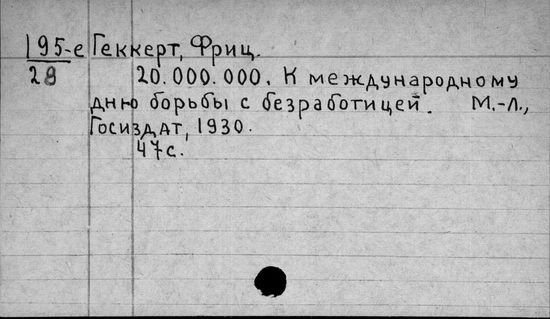 195-е Геккерт, Фриц.
28 20.000.000. К международному
дню борьбы с безработицей. М.-Л.,
Госиздат, 1930.
47с.